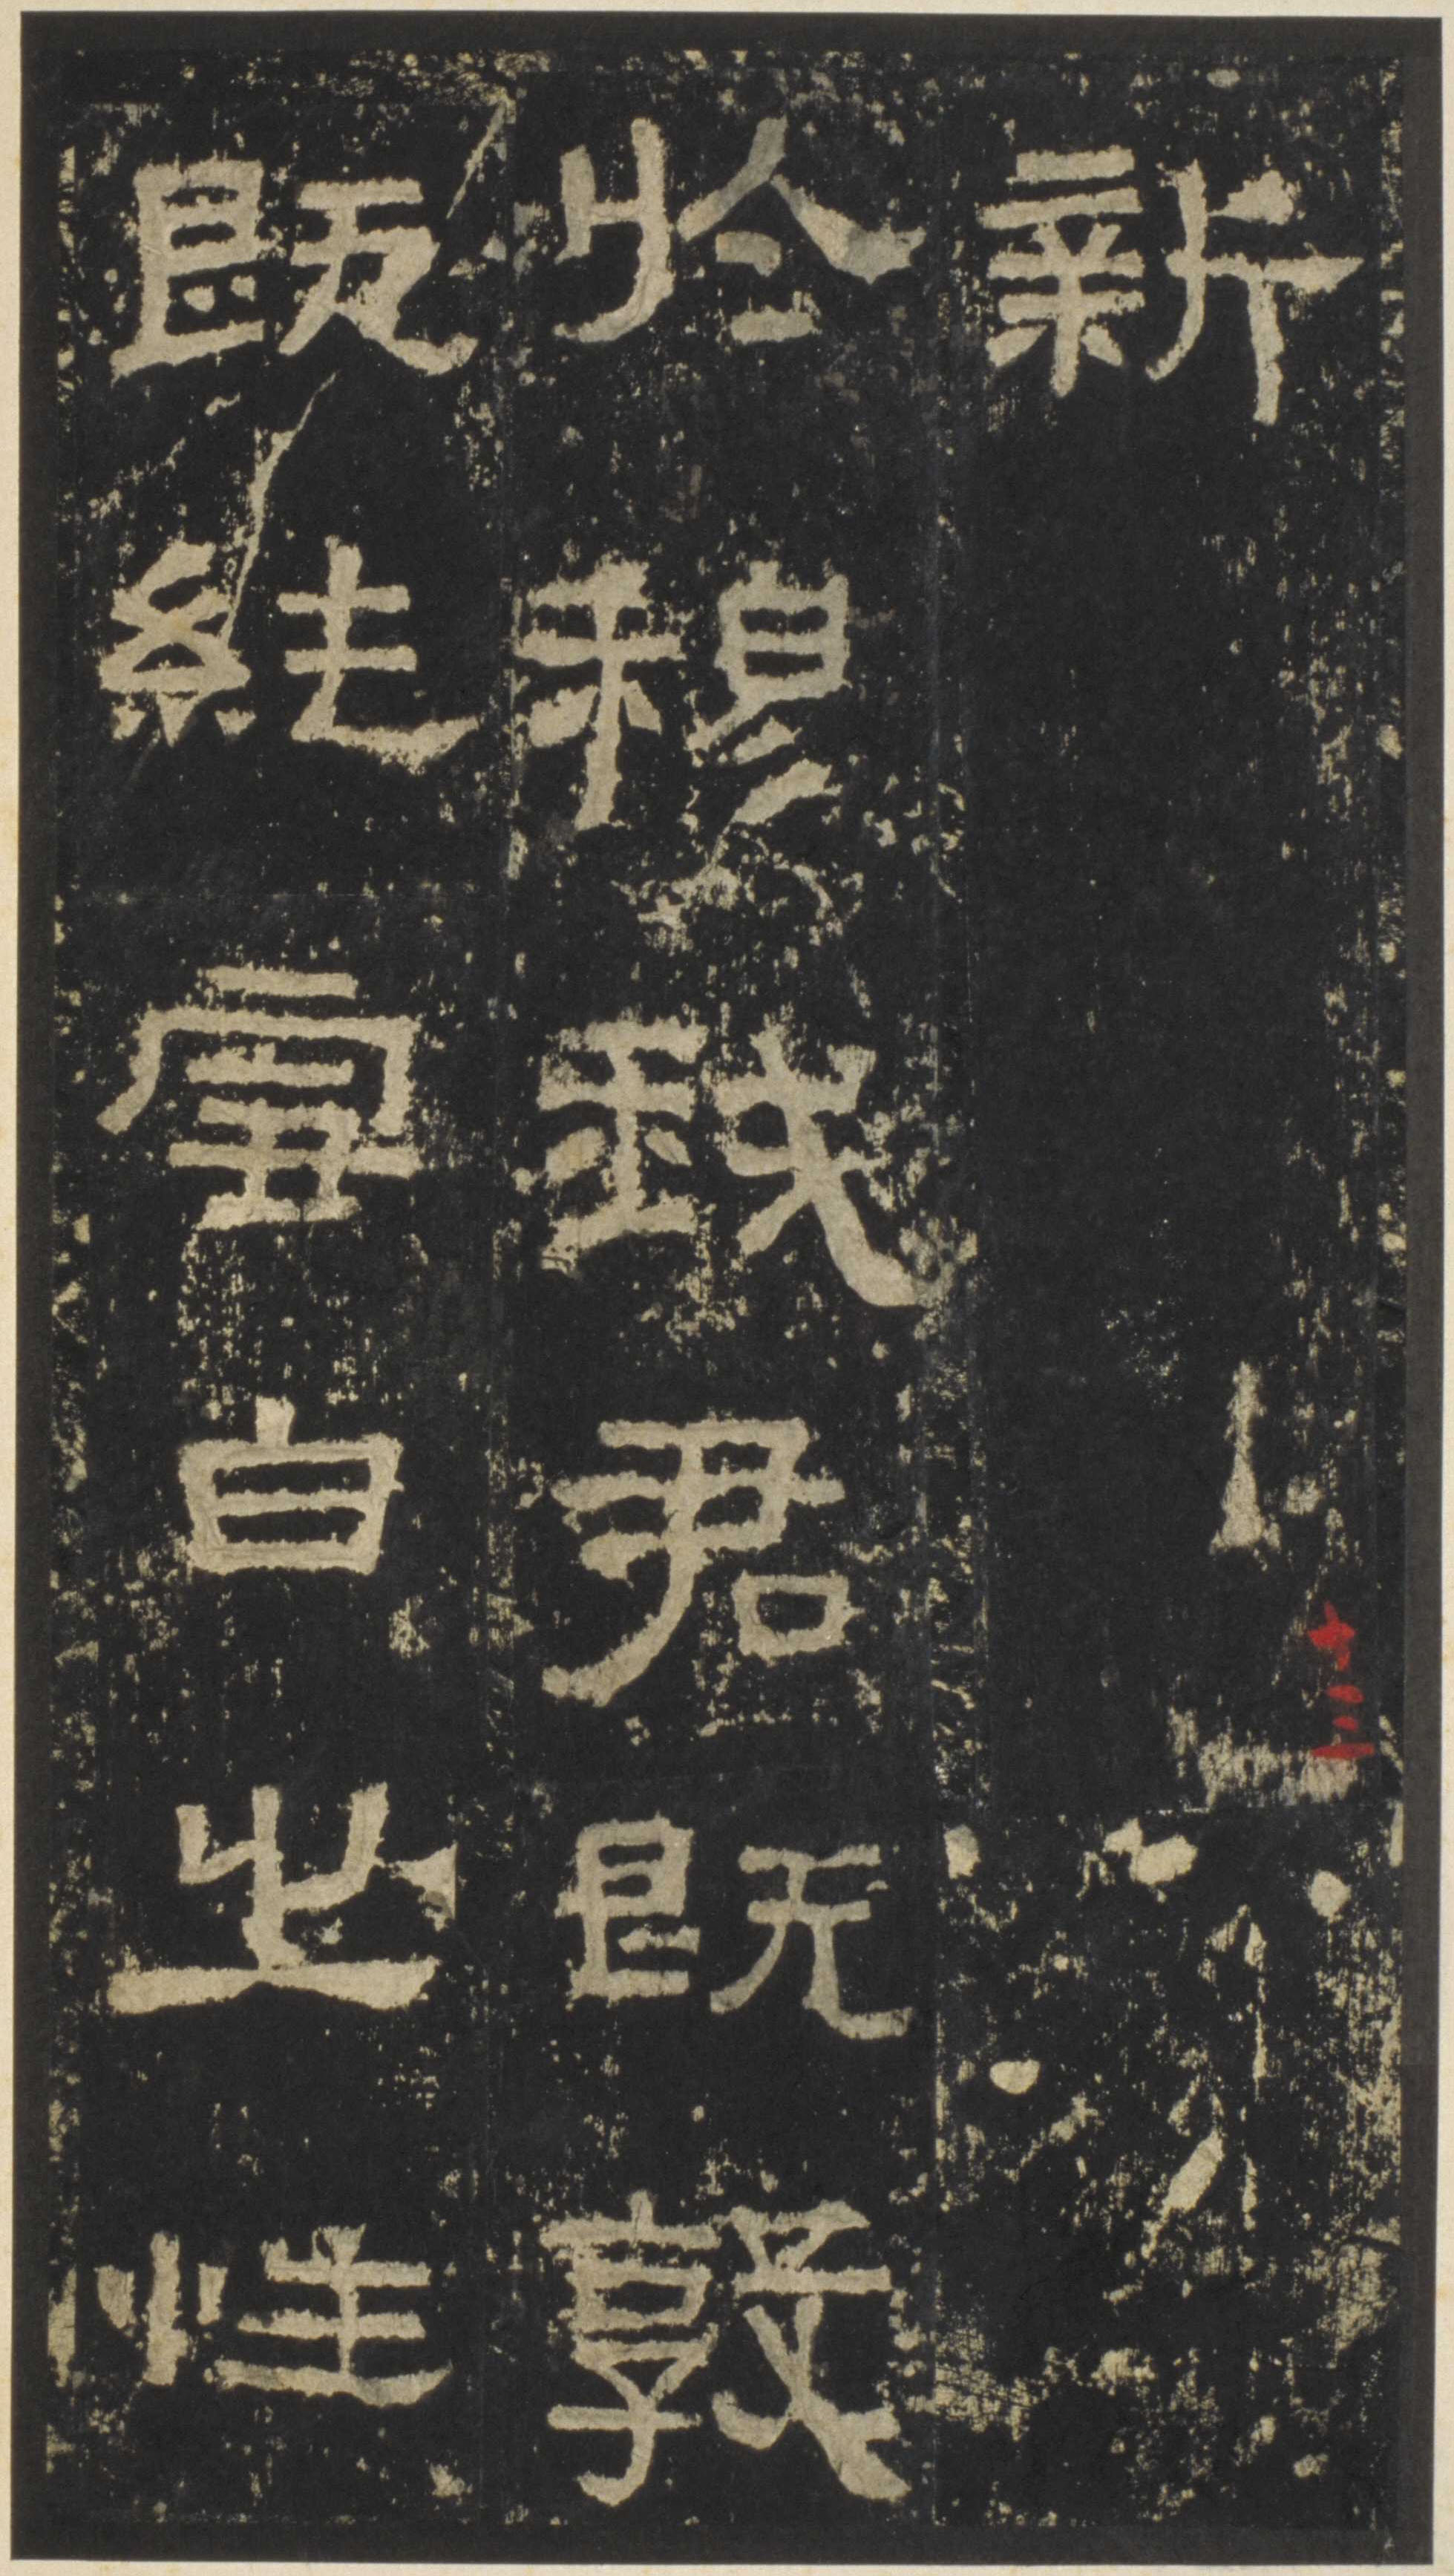 新
十三
於穆我君既敦
既純雪白之性